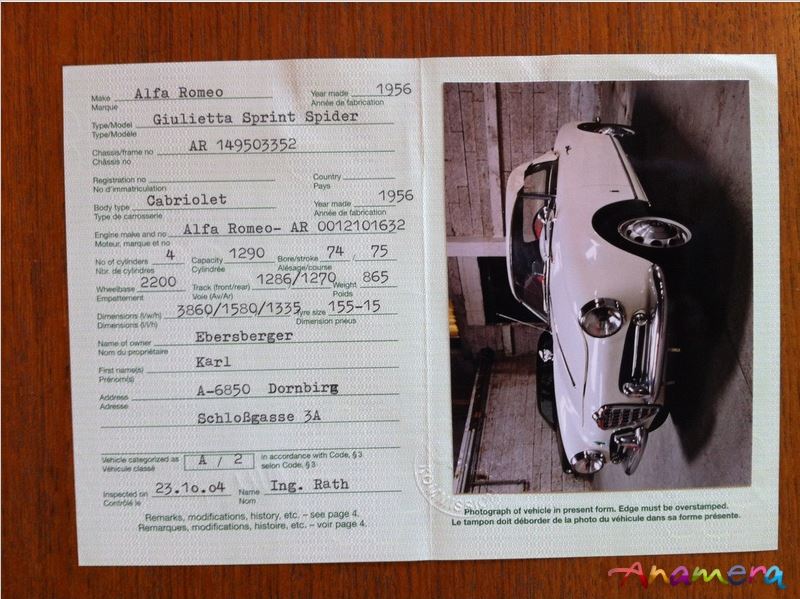 Make Alfa Romeo Year made 1956
Marque Année de fabrication
Type/Model Giulietta Sprint Spider
Type/Modèle
Chassis/frame no AR 149503352
Châssis no
Registration no Country
No d'immatriculation Pays
Body type Cabriolet Year made 1956
Type de carrosserie Année de fabrication
Engine make and no Alfa Romeo- AR 0012101632
Moteur, marque et no
No of cylinders 4 Capacity 1290 Bore/stroke 74 / 75
Nbr. de cylindres Cylindrée Alésage/course
Wheelbase 2200 Track (front/rear) 1286/1270 Weight 865
Empattement Voie (Av/Ar) Poids
Dimensions (l/w/h) 3860/1580/1335 Tyre size 155-15
Dimensions (l/l/h) Dimension pneus
Name of owner Ebersberger
Nom du propriétaire
First name(s) Karl
Prénom(s)
Address A-6850 Dornbirg
Adresse
Schloßgasse 3A
Vehicle categorized as A / 2 in accordance with Code, §3
Véhicule classé selon Code, §3
Inspected on 23.10.04 Name Ing. Rath
Contrôlé le Nom
Remarks, modifications, history, etc. – see page 4.
Remarques, modifications, histoire, etc. – voir page 4.
Photograph of vehicle in present form. Edge must be overstamped.
Le tampon doit déborder de la photo du véhicule dans sa forme présente.
Anamera